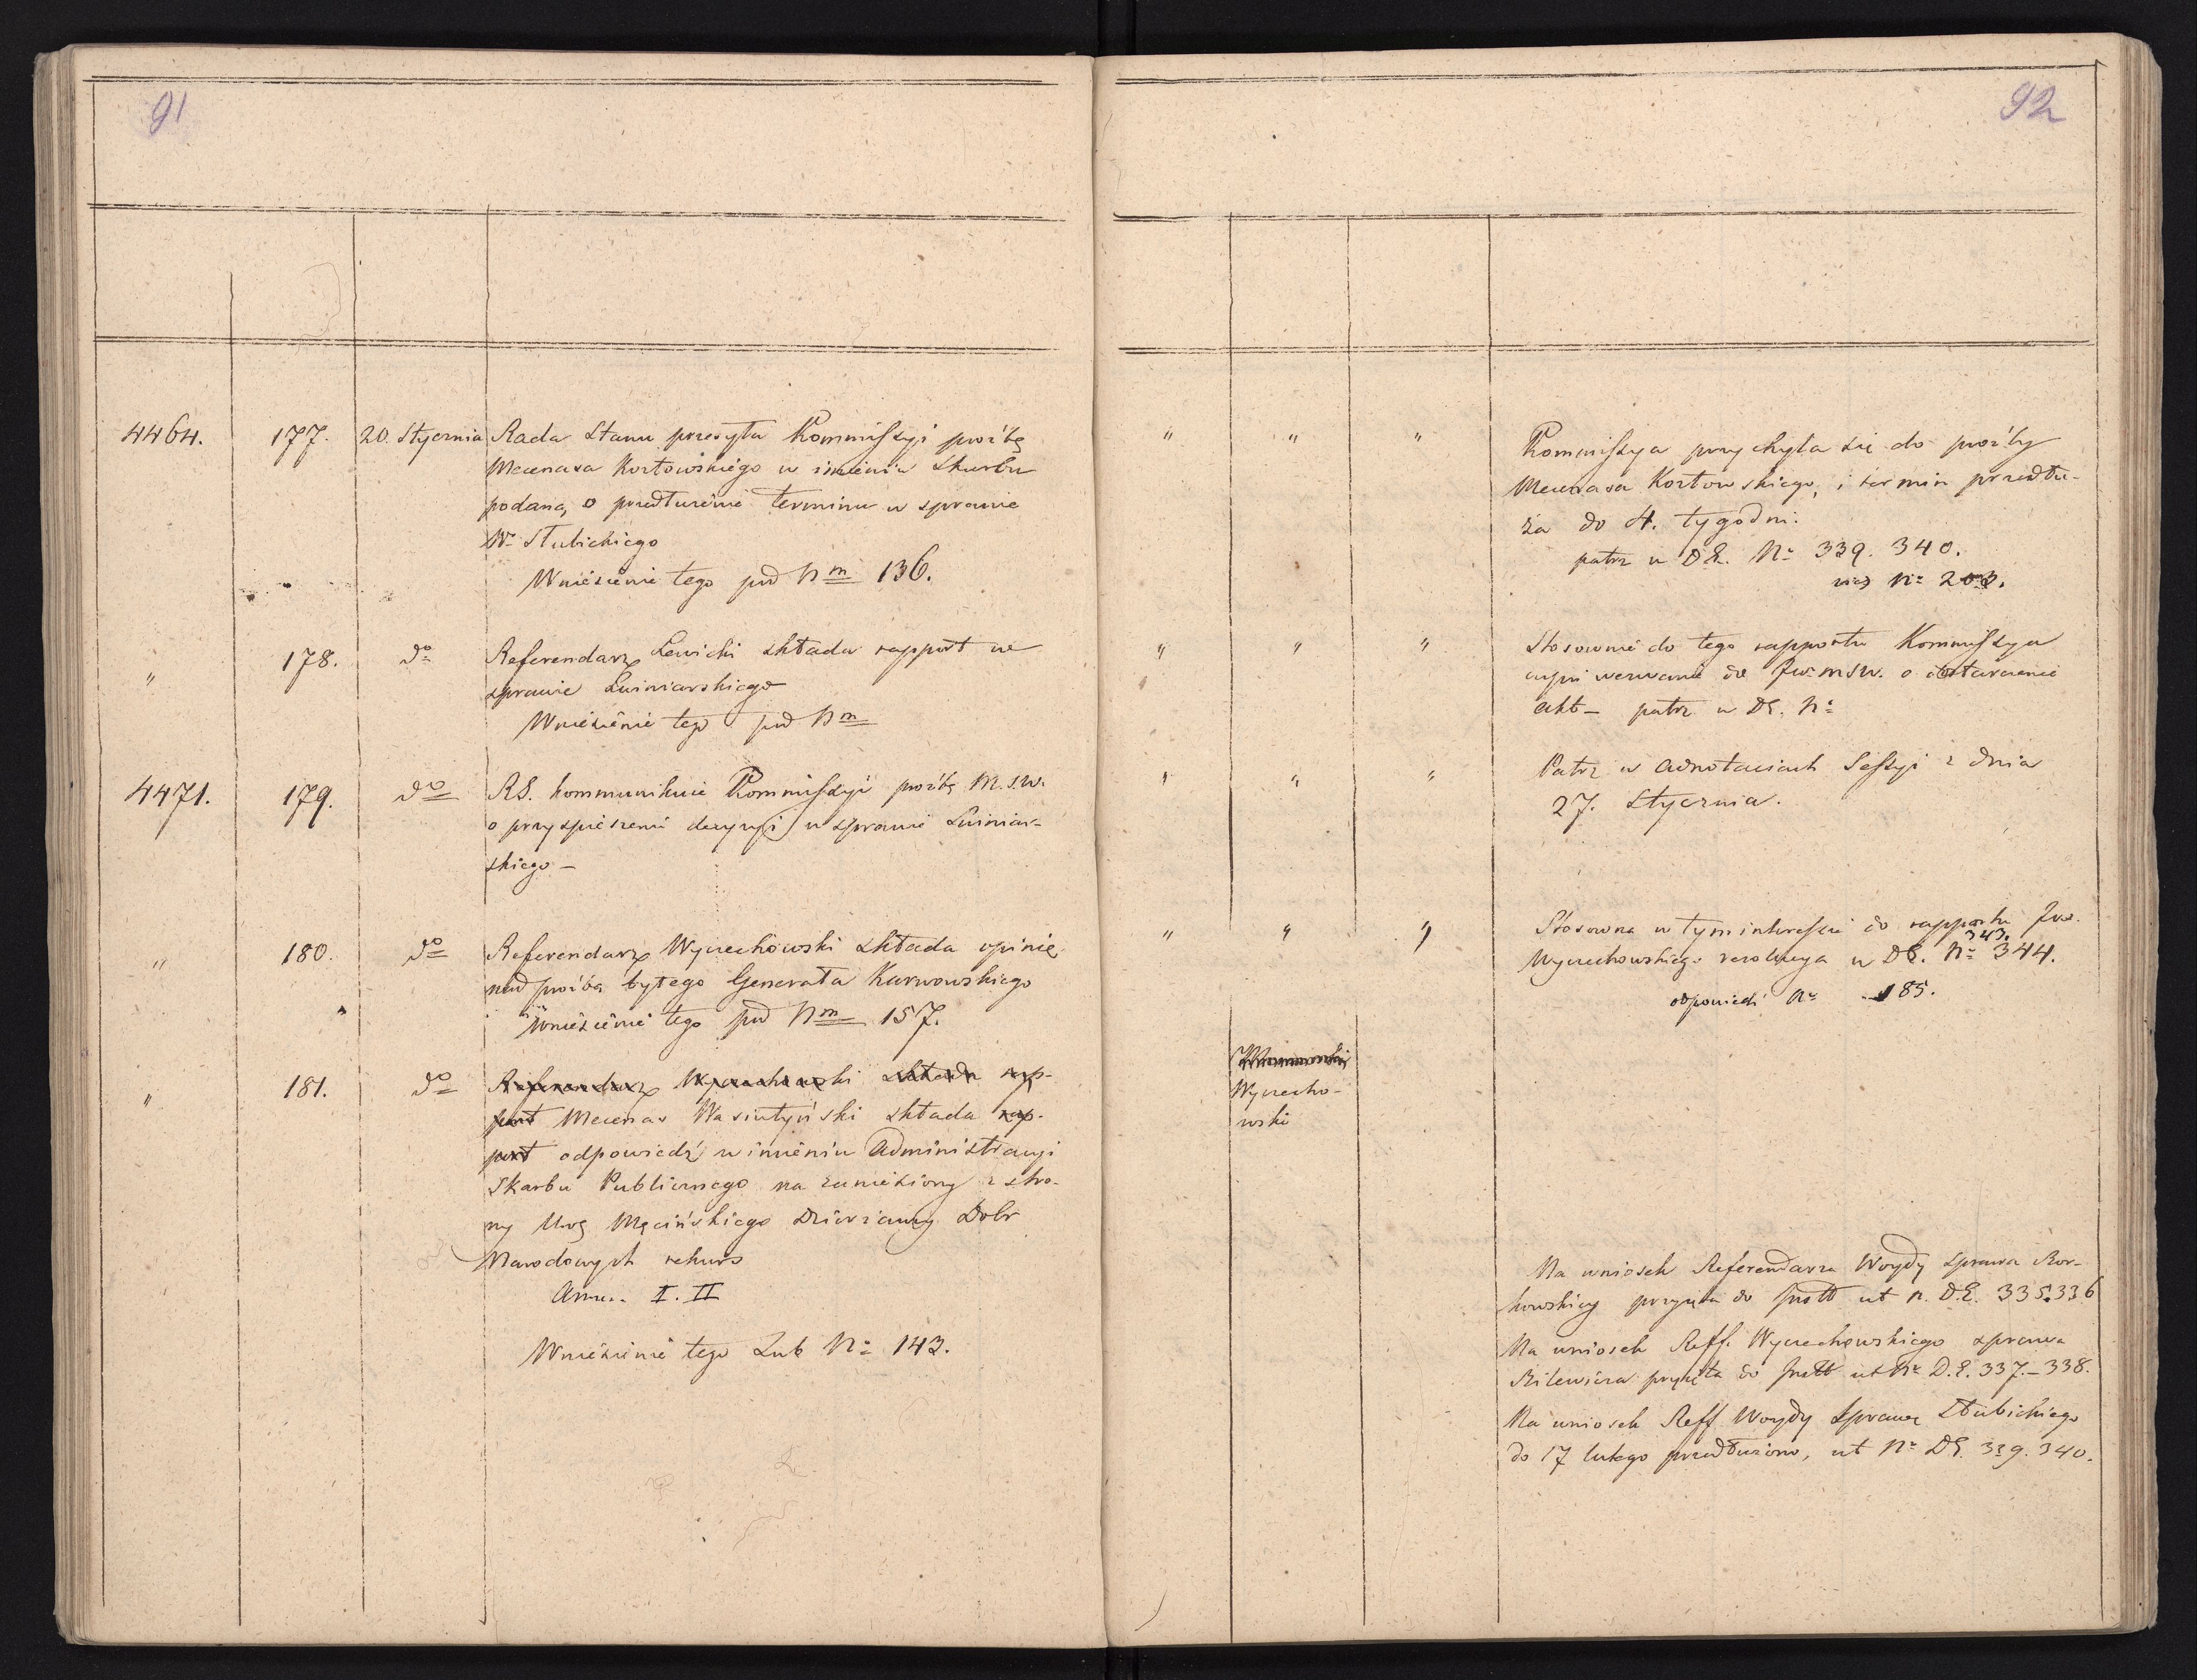 91
4464. 177. 20. Stycznia Rada Stanu przesyła Kommissyi proźbę
Mecenasa Kozłowskiego w imieniu Skarbu
podaną, o przedłużenie terminu w sprawie
Wo Słubickiego
Wniesienie tego pod Nm 136.
" 178. do Referendarz Lewicki składa rapport w
sprawie Luiniarskiego
Wniesienie tego pod Nm
4471. 179. do RS. kommunikuie Kommissyi proźbę M.S.W.
o przyspieszenie decyzyi w sprawie Luiniar-
skiego –
" 180. do Referendarz Wyczechowski składa opinię
nad proźbą byłego Generała Karwowskiego
Wniesienie tego pod Nm 157.
" 181. do Referendarz Wyczechowski składa rap-
port Mecenas Wasiutyński składa rap-
port odpowiedź w imieniu Administracyi
Skarbu Publicznego na zaniesiony z stro-
ny Ur Męcińskiego Dzierżawcy Dobr
Narodowych rekurs
I. II
Wniesienie tego Sub No 143.
92
" " " Kommissya przychyla się do proźby
Mecenasa Kozłowskiego, i termin przedłu-
ża do 4. tygodni.
patrz w DE. No 339. 340.
No 203.
" " " Stosownie do tego rapportu Kommissya
wezwanie do JW. MSW. o dostarczenie
akt – patrz w DE. No
" " " Patrz w adnotaciach Sessyi z dnia
27. Stycznia.
" " " Stosowna w tym interessie do rapportu JW.
343.
Wyczechowskiego rezolucya w DE. No 344.
odpowiedź No 185.
Wyczecho-
wski
Na wniosek Referendarza Woydy sprawa Bor-
kowskiey przyięta do Instt ut n. D.E. 335.336
Na wniosek Reff. Wyczechowskiego sprawa
Bilewicza przyięta do Instt ut No D.E. 337.–338.
Na wniosek Reff Woydy sprawę Słubickiego
do 17 lutego przedłużono, ut No DE. 339. 340.